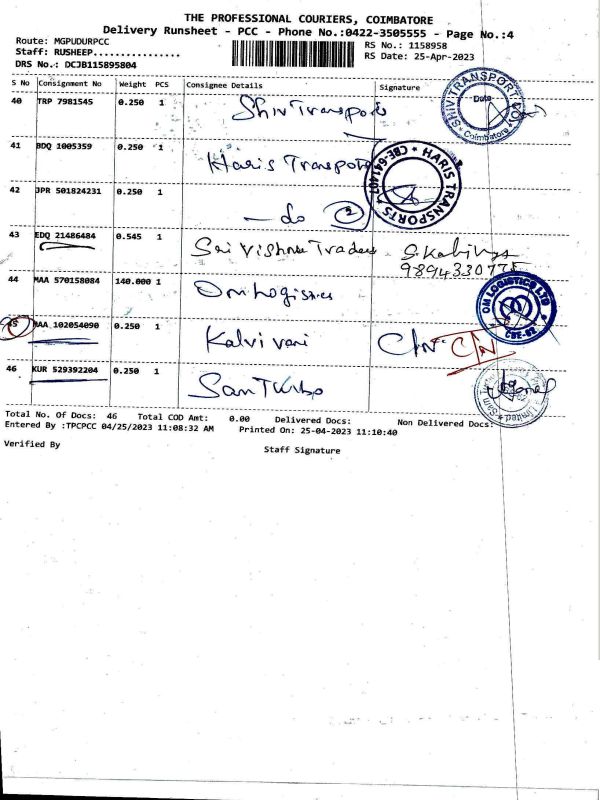 THE PROFESSIONAL COURIERS, COIMBATORE
Delivery Runsheet - PCC - Phone No.:0422-3505555 - Page No.:4
Route: MGPUDURPCC
RS No.: 1158958
Staff: RUSHEEP................
RS Date: 25-Apr-2023
DRS No.: DCJB115895804
S No Consignment No Weight PCS Consignee Details Signature
40 TRP 7981545 0.250 1 Shiv Transports SHIV TRANSPORT Date Coimbatore
41 BDQ 1005359 0.250 1 Haris Transports HARIS TRANSPORTS CBE-641407
42 JPR 501824231 0.250 1 - do ②
43 EDQ 21486484 0.545 1 Sri Vishnu Traders
9894330775
44 MAA 570158084 140.000 1 Om Logistics OM LOGISTICS LTD
45 MAA 102054090 0.250 1 Kalvi vani C/N C/N
46 KUR 529392204 0.250 1 Sam Turbo Limited
Total No. Of Docs: 46 Total COD Amt: 0.00 Delivered Docs: Non Delivered Docs:
Entered By :TPCPCC 04/25/2023 11:08:32 AM Printed On: 25-04-2023 11:10:40
Verified By
Staff Signature